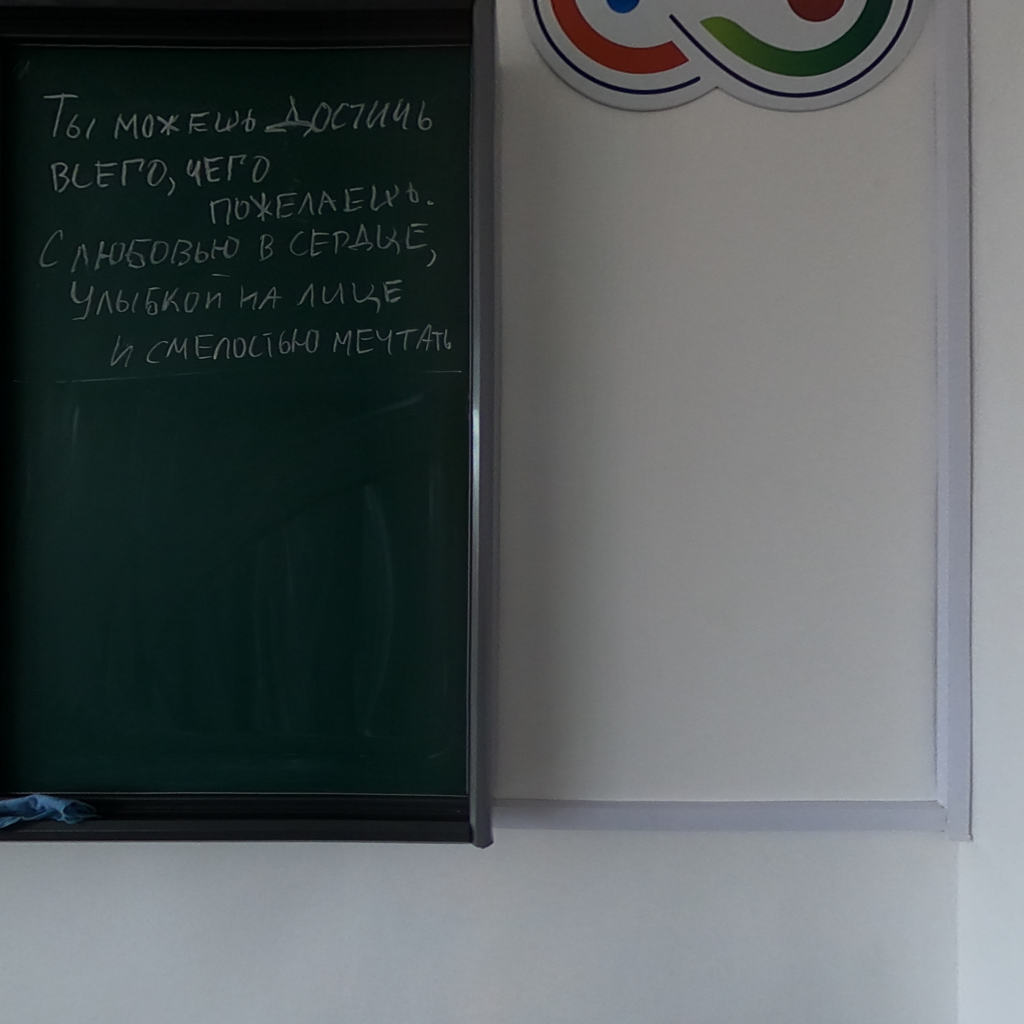 Ты можешь достичь
всего, чего
пожелаешь.
С любовью в сердце,
улыбкой на лице
и смелостью мечтать